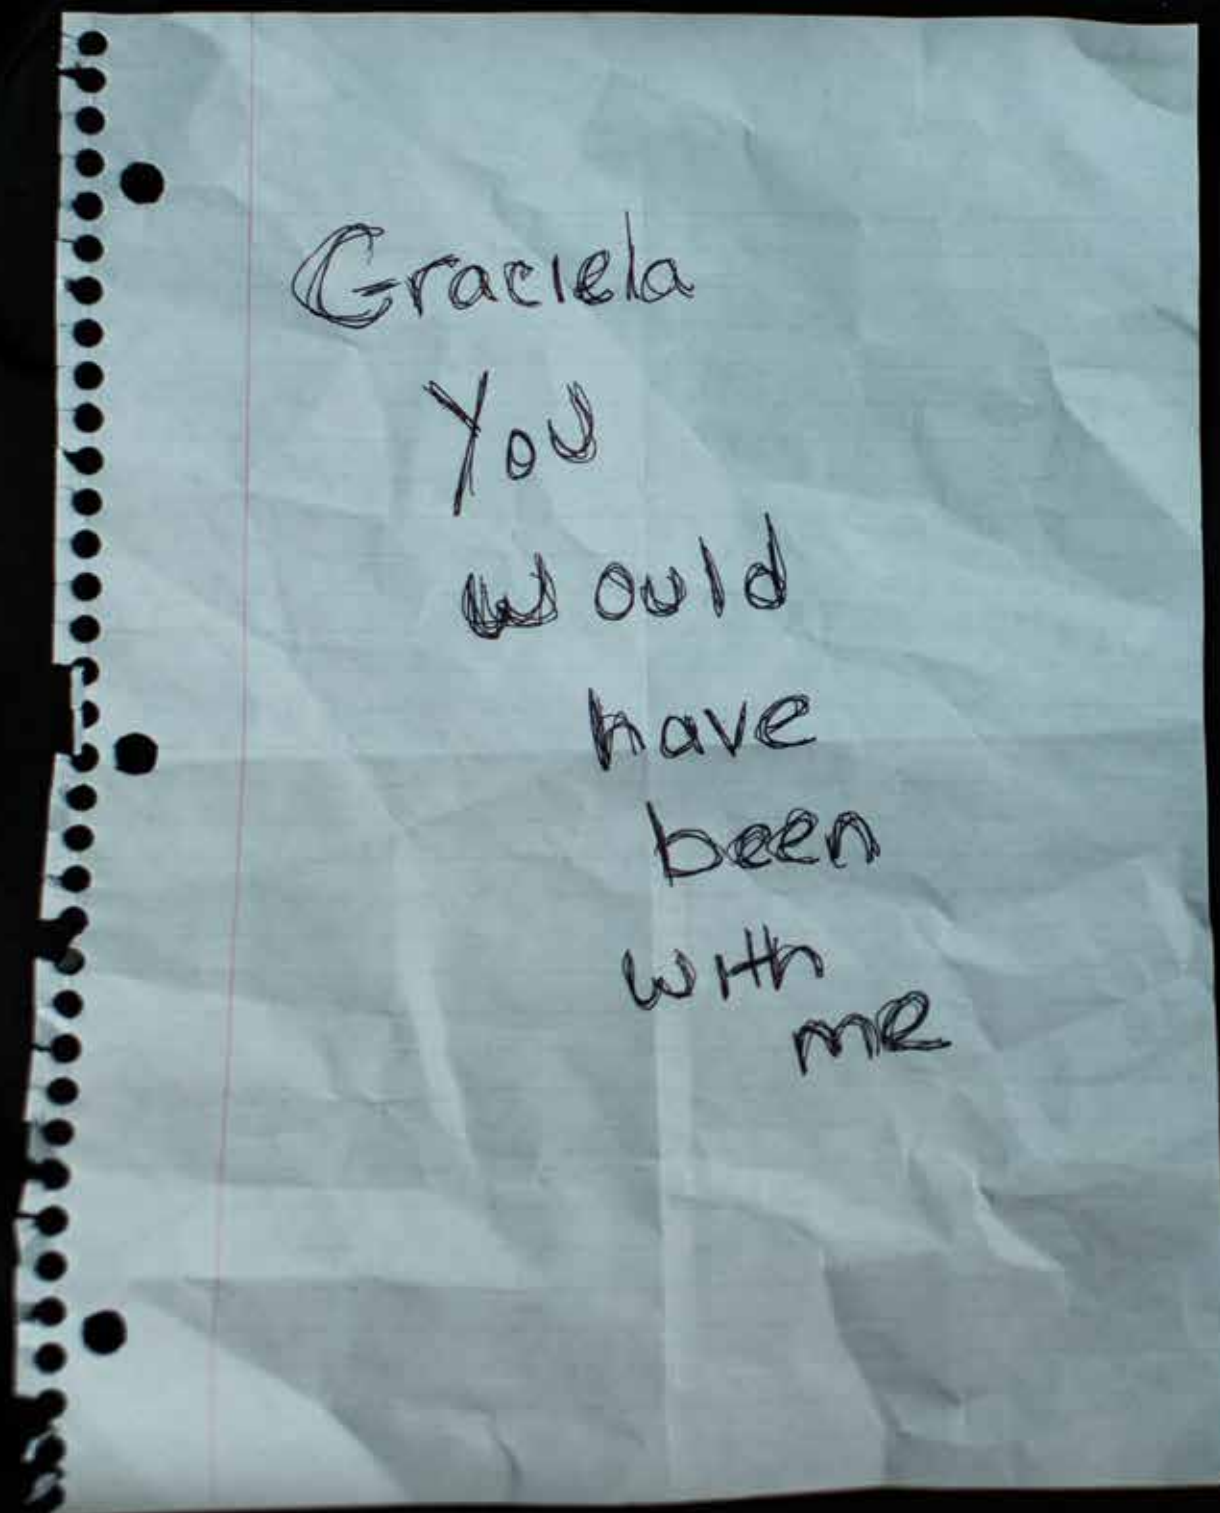 Graciela
You
would
have
been
with
me